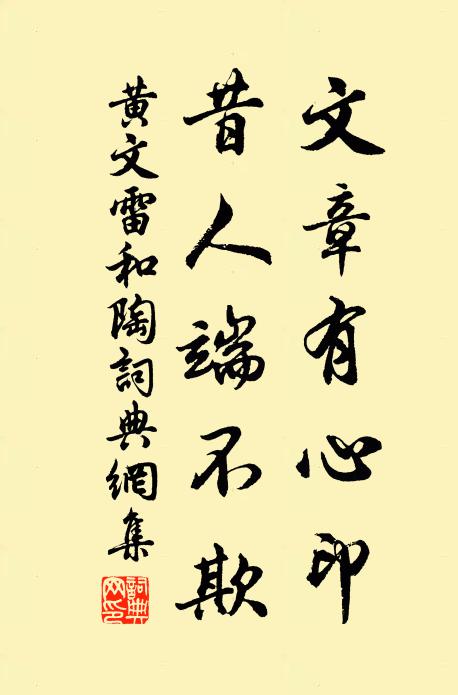 文章有心印
昔人端不欺
黄文雷和陶詞典網集
詞典網印